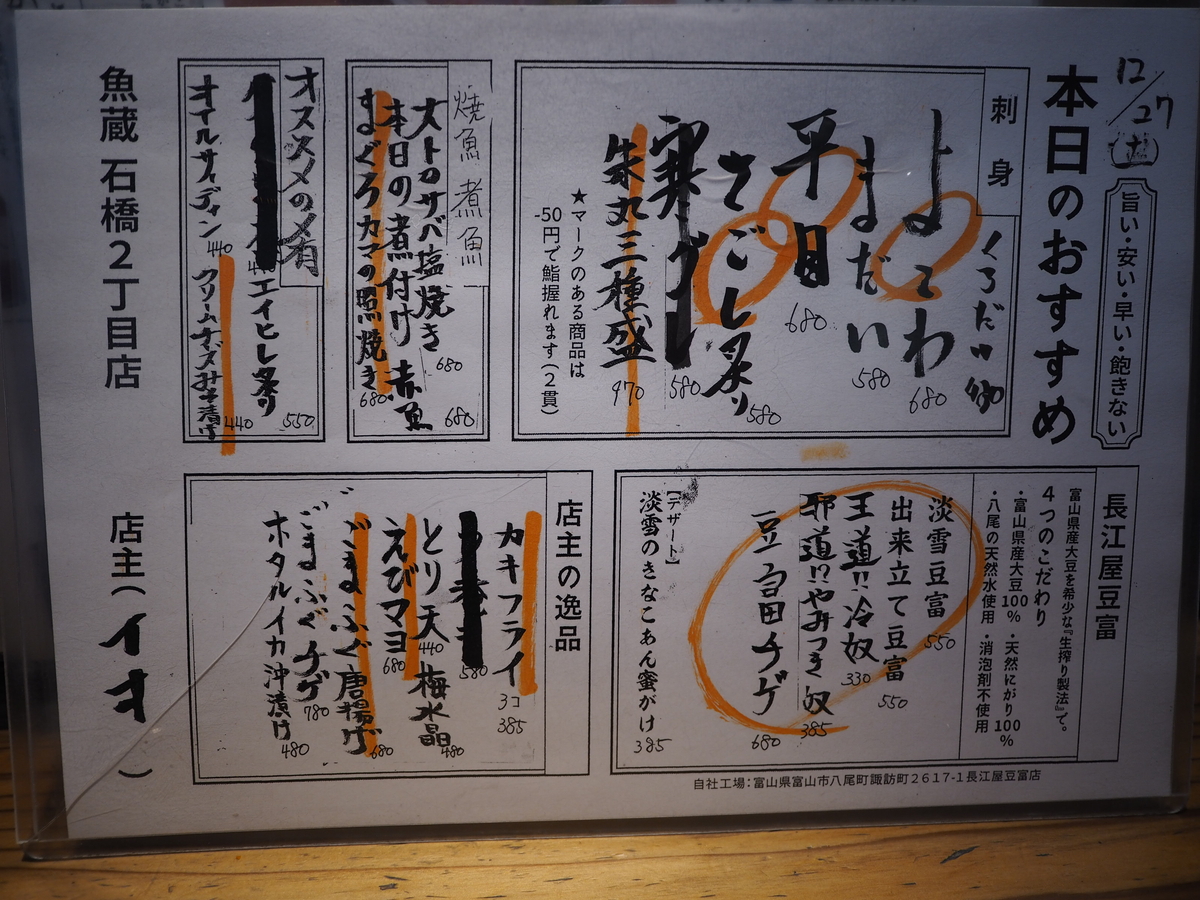 12/27(土)
旨い・安い・早い・飽きない
本日のおすすめ
刺身
よこわ
680
まだい
580
平目
680
さごし炙り
580
寒グレ
580
朱丸三種盛
970
★マークのある商品は
-50円で鮨握れます(2貫)
焼魚 煮魚
大トロサバ塩焼き
680
本日の煮付け 赤魚
680
まぐろカマの照焼き
680
オススメの〆肴
エイヒレ炙り
550
オイルサーディン
440
クリームチーズみそ漬け
440
魚蔵 石橋2丁目店
長江屋豆富
富山県産大豆を希少な『生搾り製法』で。
4つのこだわり
・富山県産大豆100% ・天然にがり100%
・八尾の天然水使用 ・消泡剤不使用
淡雪豆富
550
出来立て豆富
550
王道!!冷奴
330
邪道!!やみつき奴
385
豆富チゲ
680
【デザート】
淡雪のきなこあん蜜がけ
385
自社工場:富山県富山市八尾町諏訪町2617-1長江屋豆富店
店主の逸品
カキフライ
3コ
385
580
とり天
440
梅水晶
480
えびマヨ
680
ごまふぐ唐揚げ
680
ごまふぐチゲ
780
ホタルイカ沖漬け
480
店主(イオ)